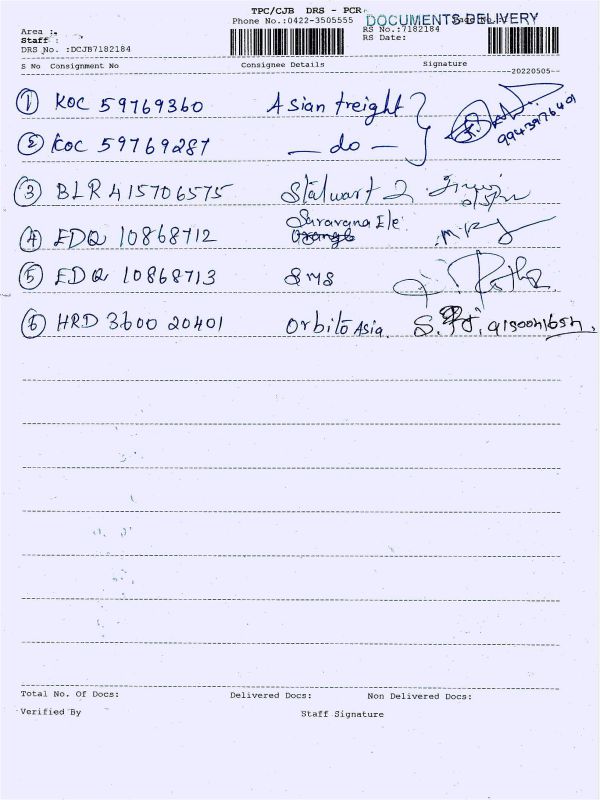 TPC/CJB DRS - PCR
Phone No.:0422-3505555
DOCUMENTS DELIVERY
Area :
RS No.:7182184
Staff :
RS Date:
DRS No. :DCJB7182184
S No Consignment No Consignee Details Signature
20220505
1 KOC 59769360 Asian freight
2 KOC 59769287 — do — 9943976401
3 BLR 415706575 Stalwart 2
Saravana Ele
4 EDQ 10868712
5 EDQ 10868713 SMS
6 HRD 3600 20401 Orbito Asia.
Total No. Of Docs: Delivered Docs: Non Delivered Docs:
Verified By Staff Signature